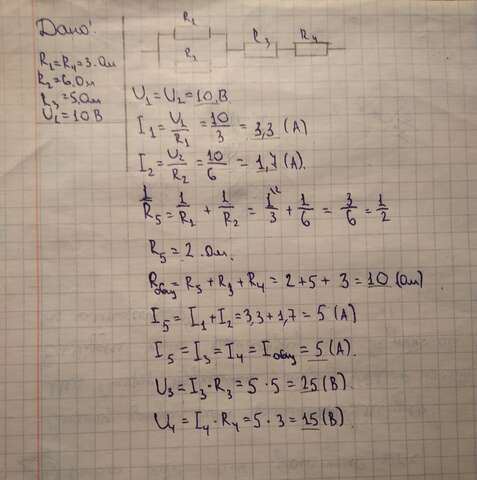 Дано:
R₁=R₄=3.Ом
R₂=6.Ом
R₃=5.Ом
U₂=10В
R₁
R₂
R₃
R₄
U₁=U₂=10.В.
I₁=U₁/R₁=10/3=3,3(А)
I₂=U₂/R₂=10/6=1,7(А).
1/R₅=1/R₁+1/R₂=1/3+1/6=3/6=1/2
R₅=2.Ом.
Rобщ=R₅+R₃+R₄=2+5+3=10(Ом)
I₅=I₁+I₂=3,3+1,7=5(А)
I₅=I₃=I₄=Iобщ=5(А).
U₃=I₃·R₃=5·5=25(В).
U₄=I₄·R₄=5·3=15(В).